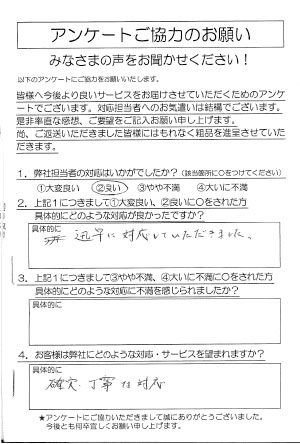 アンケートご協力のお願い
みなさまの声をお聞かせください！
以下のアンケートにご協力をお願いいたします。
皆様へ今後より良いサービスをお届けさせていただくためのアンケ
ートでございます。対応担当者へのお気遣いは結構でございます。
是非率直な感想、ご要望をご記入お願い申し上げます。
尚、ご返送いただきました皆様にはもれなく粗品を進呈させていた
だきます。
1．弊社担当者の対応はいかがでしたか？（該当箇所に○をつけてください）
①大変良い ②良い ③やや不満 ④大いに不満
2．上記1につきまして①大変良い、②良いに○をされた方
具体的にどのような対応が良かったですか？
具体的に
迅早に対応していただきました。
3．上記1につきまして③やや不満、④大いに不満に○をされた方
具体的にどのような対応に不満を感じられましたか？
具体的に
4．お客様は弊社にどのような対応・サービスを望まれますか？
具体的に
確実、丁寧な対応
★アンケートにご協力いただきまして誠にありがとうございました。
今後とも何卒宜しくお願い申し上げます。